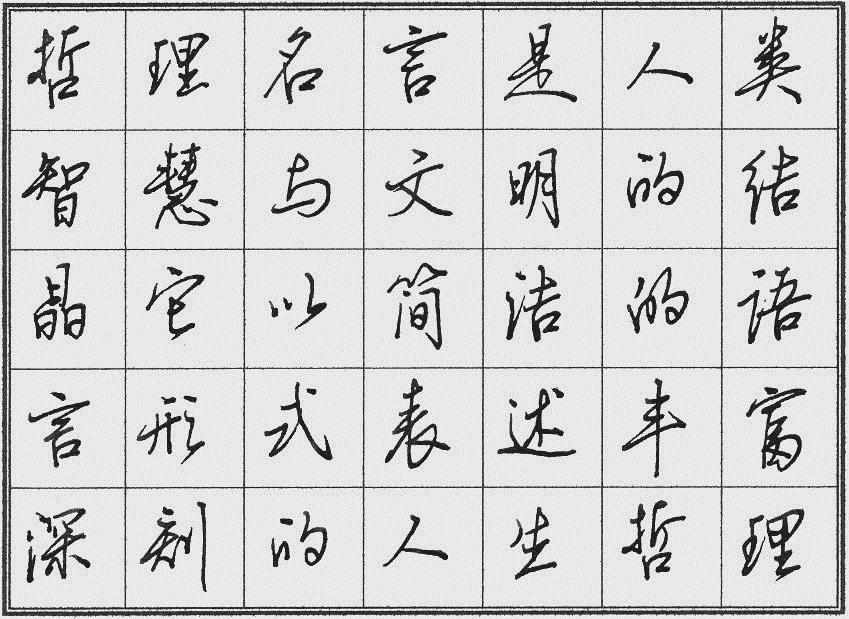 哲理名言是人类
智慧与文明的结
晶它以简洁的语
言形式表述丰富
深刻的人生哲理